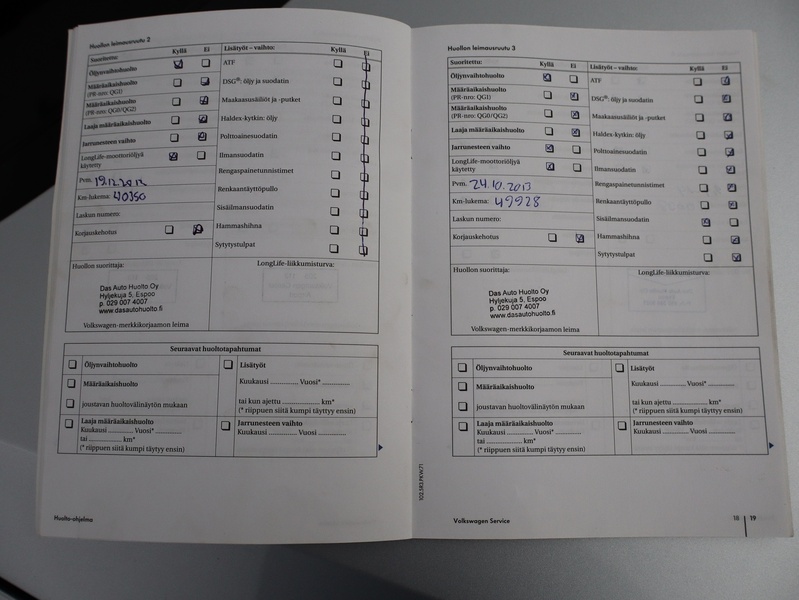 Huollon leimausruutu 2
Suoritettu: Kyllä Ei
Öljynvaihtohuolto
Määräaikaishuolto
(PR-nro: QGI)
Määräaikaishuolto
(PR-nro: QG0/QG2)
Laaja määräaikaishuolto
Jarrunesteen vaihto
LongLife-moottoriöljyä
käytetty
Pvm. 19.12.2012
Km-lukema: 40350
Laskun numero:
Korjauskehotus
Lisätyöt – vaihto: Kyllä Ei
ATF
DSG®: öljy ja suodatin
Maakaasusäiliöt ja -putket
Haldex-kytkin: öljy
Polttoainesuodatin
Ilmansuodatin
Rengaspainetunnistimet
Renkaantäyttöpullo
Sisäilmansuodatin
Hammashihna
Sytytystulpat
Huollon suorittaja:
Das Auto Huolto Oy
Hyljekuja 5, Espoo
p. 029 007 4007
www.dasautohuolto.fi
Volkswagen-merkkikorjaamon leima
LongLife-liikkumisturva:
Seuraavat huoltotapahtumat
Öljynvaihtohuolto
Määräaikaishuolto
joustavan huoltovälinäytön mukaan
Lisätyöt
Kuukausi .............. Vuosi* ..............
tai kun ajettu .................. km*
(* riippuen siitä kumpi täyttyy ensin)
Laaja määräaikaishuolto
Kuukausi ............ Vuosi* ............
tai .................. km*
(* riippuen siitä kumpi täyttyy ensin)
Jarrunesteen vaihto
Kuukausi ............ Vuosi ..............
Huolto-ohjelma
Huollon leimausruutu 3
Suoritettu: Kyllä Ei
Öljynvaihtohuolto
Määräaikaishuolto
(PR-nro: QGI)
Määräaikaishuolto
(PR-nro: QG0/QG2)
Laaja määräaikaishuolto
Jarrunesteen vaihto
LongLife-moottoriöljyä
käytetty
Pvm. 24.10.2013
Km-lukema: 49928
Laskun numero:
Korjauskehotus
Lisätyöt – vaihto: Kyllä Ei
ATF
DSG®: öljy ja suodatin
Maakaasusäiliöt ja -putket
Haldex-kytkin: öljy
Polttoainesuodatin
Ilmansuodatin
Rengaspainetunnistimet
Renkaantäyttöpullo
Sisäilmansuodatin
Hammashihna
Sytytystulpat
Huollon suorittaja:
Das Auto Huolto Oy
Hyljekuja 5, Espoo
p. 029 007 4007
www.dasautohuolto.fi
Volkswagen-merkkikorjaamon leima
LongLife-liikkumisturva:
Seuraavat huoltotapahtumat
Öljynvaihtohuolto
Määräaikaishuolto
joustavan huoltovälinäytön mukaan
Lisätyöt
Kuukausi .............. Vuosi* ..............
tai kun ajettu .................. km*
(* riippuen siitä kumpi täyttyy ensin)
Laaja määräaikaishuolto
Kuukausi ............ Vuosi* ............
tai .................. km*
(* riippuen siitä kumpi täyttyy ensin)
Jarrunesteen vaihto
Kuukausi ............ Vuosi ..............
Volkswagen Service
18 19